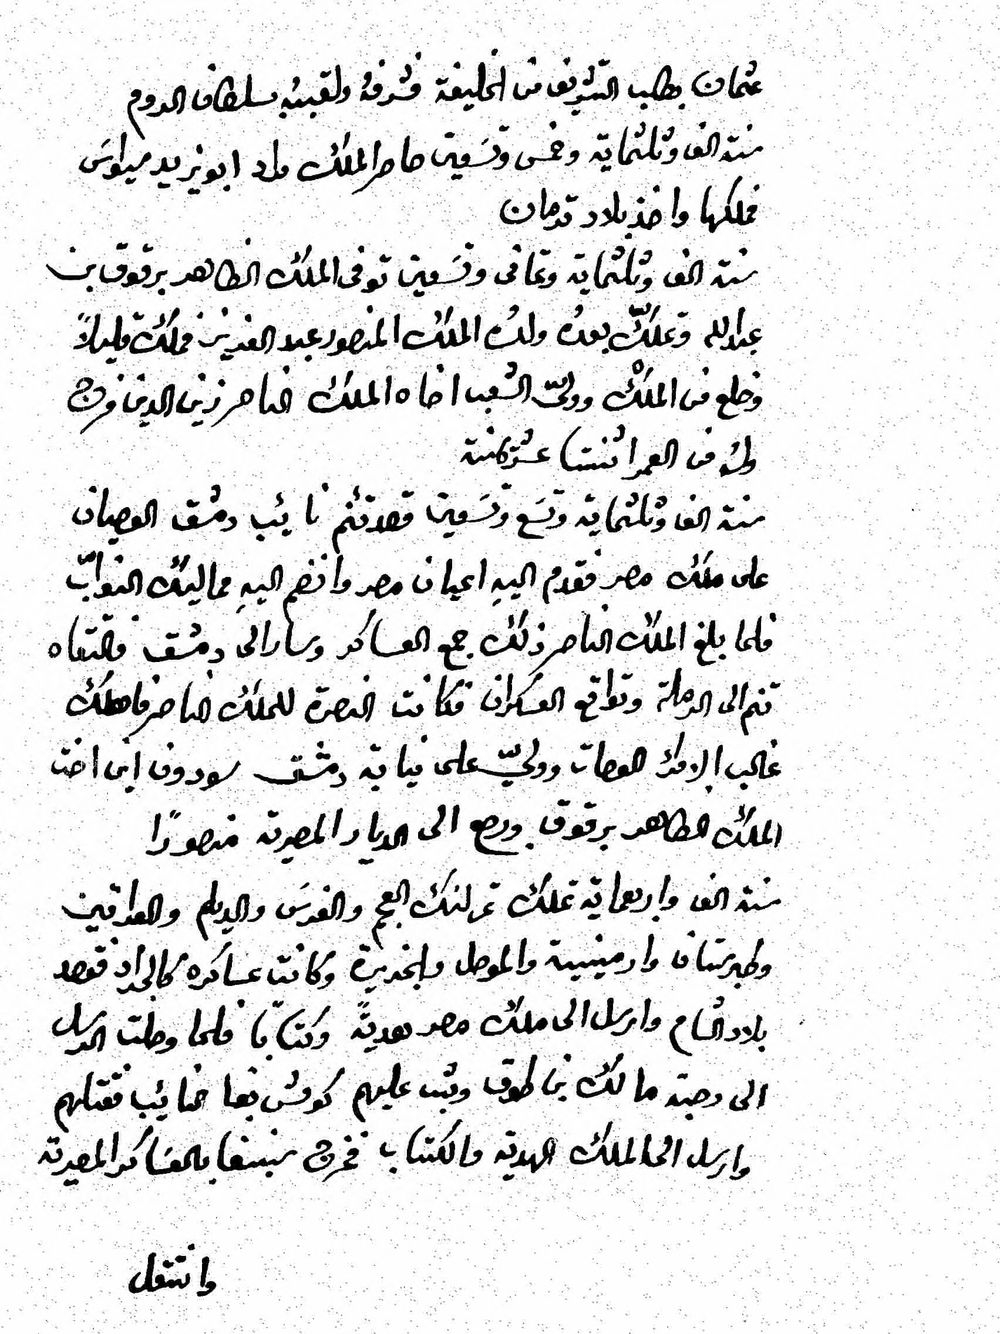 عثمان بطلب التشريف من الخليفة فشرفهُ ولقبهُ بسلطان الروم
سنة الف وثلثماية وخمس وتسعين حاصر الملك ابو يزيد سيواس
فملكها واخذ بلاد قرمان
سنة الف وثلثماية وثماني وتسعين توفى الملك الظاهر برقوق بن
عبدالله وتملّك بعدهُ ولدهُ الملك المنصور عبد العزيز فملك قليلاً
وخلع من الملك وولّى الشعب اخاه الملك الناصر زين الدين فرج
ولهُ من العمر اثنتا عشرة سنة
سنة الف وثلثماية وتسَع وتسَعين قصد تنم نايب دمشق العصيان
على ملك مصر فقدم اليهِ اعيان مصر وانضم اليهِ مماليك النوابّ
فلما بلغ الملك الناصر ذلك جمع العساكر وسار الى دمشق فالتقاه
تنم الى الرملة وتواقع العسكران فكانت النصرة للملك الناصر فاهلك
غالب اولئك العصات وولّي على نيابة دمشق سودون ابن اخت
الملك الظاهر برقوق ورجع الى الديار المصرية منصورًا
سنة الف واربعماية تملك تمرلنك العجم والفرسَ والديلم والعراقين
وطبرستان وارمينية والموصل والجزيرة وكانت عساكره كالجراد فقصد
بلاد الشام وارسل الى ملك مصر هديةً وكتابًا فلما وصلت الرسل
الى رحبة مالك بن طوق وثب عليهم كومش بغا النايب فقتلهم
وارسل الى الملك الهدية والكتاب فخرج بالعسَاكر المصرية
وانتقل